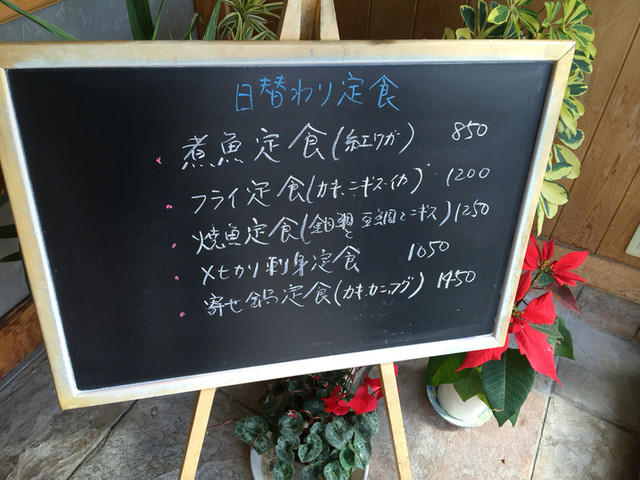 日替わり定食
煮魚定食(紅ワガ) 850
フライ定食(カキ、ニギス、イカ) 1200
焼魚定食(と ニギス) 1250
メヒカリ刺身定食 1050
寄せ鍋定食(カキ、カニ、フグ) 1450